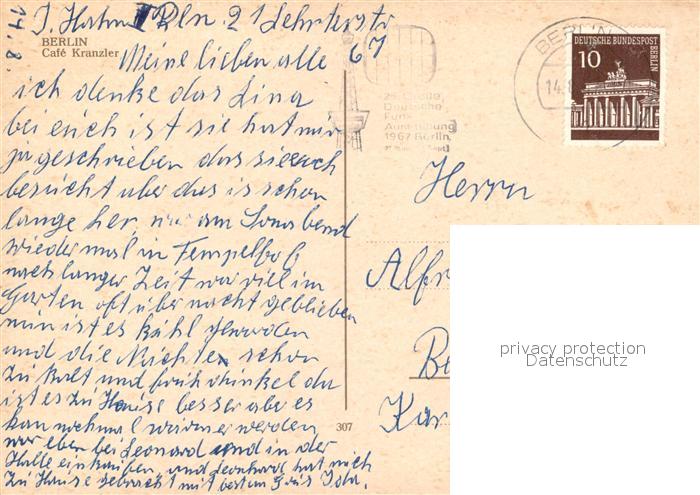 14.8. 67
J. Hahn Bln 21 Lehrterstr
BERLIN
Café Kranzler
Meine lieben alle
ich denke das Lina
bei euch ist sie hat mir
ja geschrieben das sie euch
besucht aber das is schon
lange her, war am Sonnabend
wieder mal in Tempelhof
nach langer Zeit war viel im
Garten oft über nacht geblieben
nun ist es kühl geworden
und die Nächte schon
zu kalt und früh dunkel da
ist es zu Hause besser aber es
kan nochmal wärmer werden
war eben bei Leonard und in der
Halle einkaufen, und Leonhard hat mich
zu Hause gebracht mit besten Grus Ida.
307
BERLIN
14.8
25. Große
Deutsche
Funk-
Ausstellung
1967 Berlin
DEUTSCHE BUNDESPOST
BERLIN
10
Herrn
Alfr
Be
Kar
privacy protection
Datenschutz